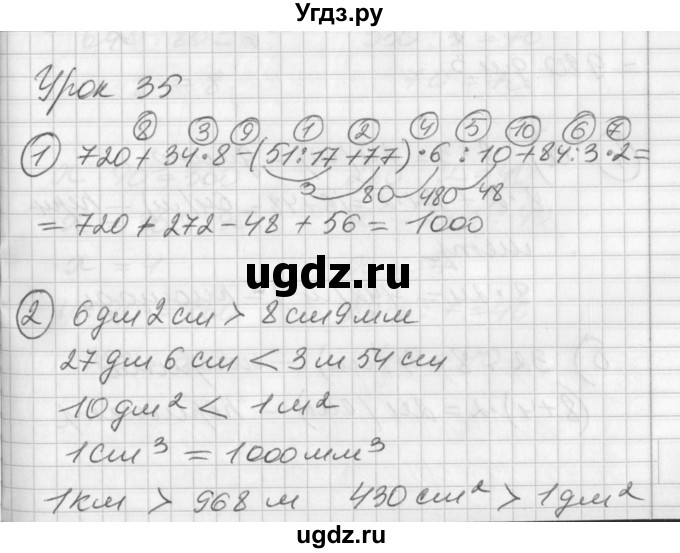 Угдз.ру
Урок 35
8 3 9 1 2 4 5 10 6 7
1 720 + 34·8 - (51:17 + 77)·6 : 10 + 84:3·2 =
3 80 480 48
= 720 + 272 - 48 + 56 = 1000
ugdz.ru
2 6 дм 2 см > 8 см 9 мм
27 дм 6 см < 3 м 54 см
10 дм² < 1 м²
1 см³ = 1000 мм³
1 км > 968 м 430 см² > 1 дм²
ugdz.ru